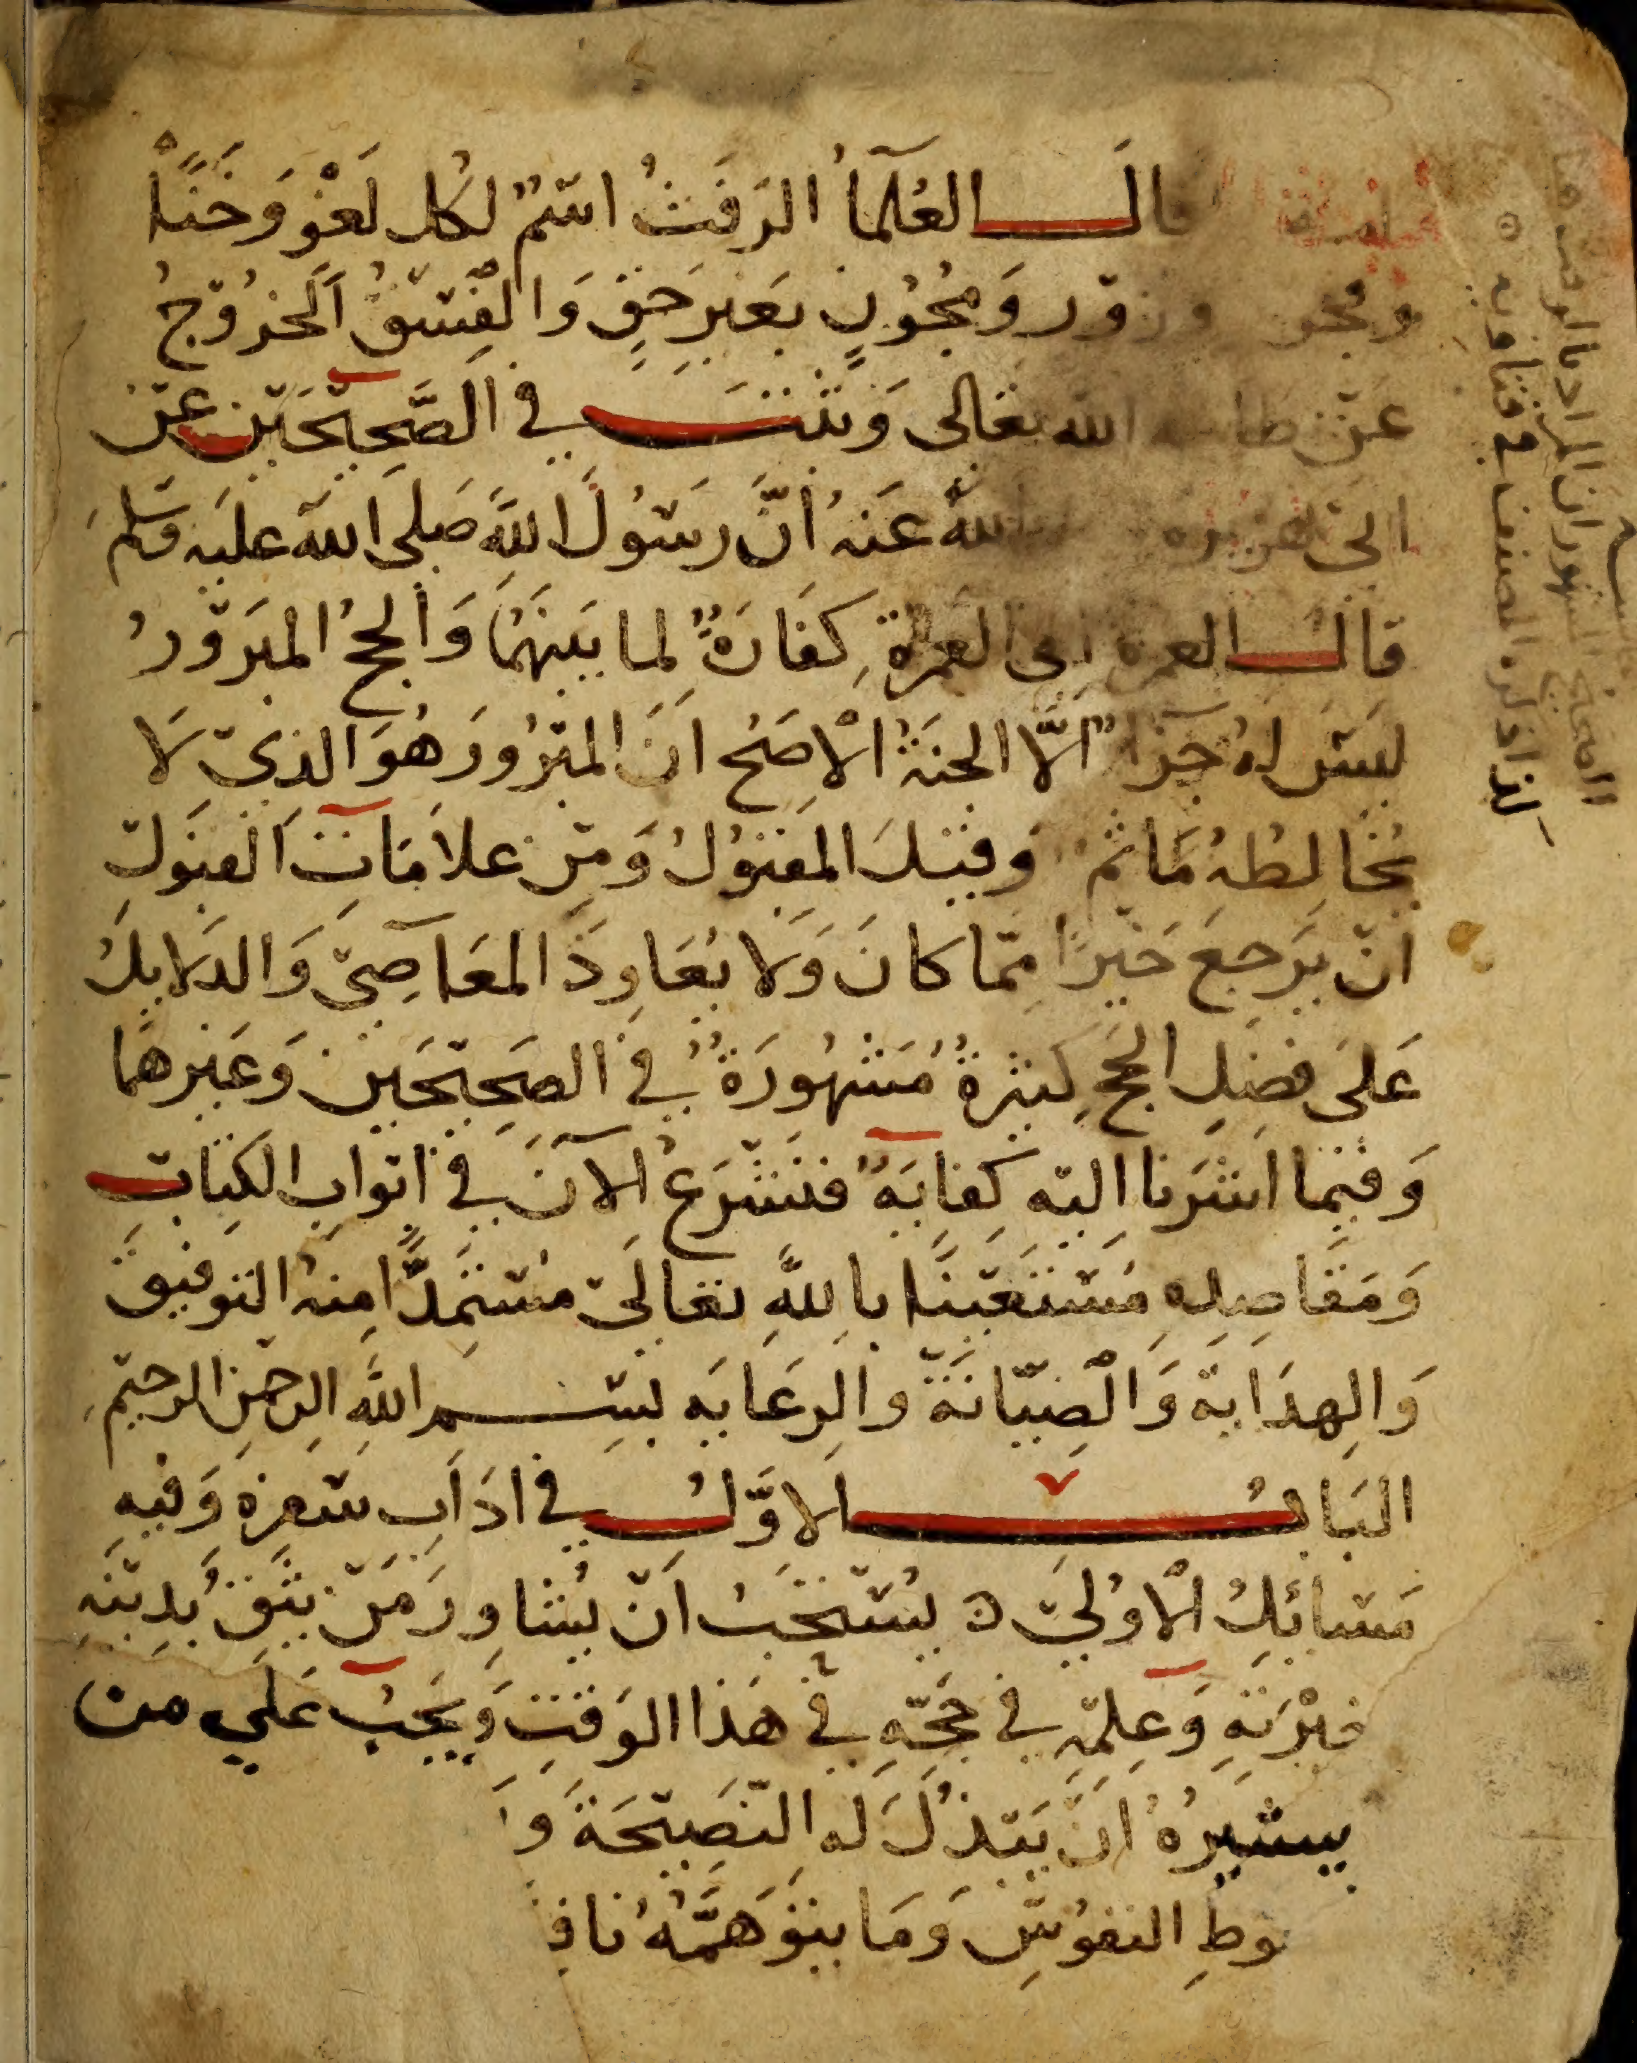 قالَ العُلمآءُ الرَفَثُ اسْمٌ لكُلِ لَغْوٍ وَخَنًا
وفجور وزوْر وَمُجُوْنٍ بغيرِ حَقٍ وَالْفِسْقُ الخرُوْجُ
عَنْ طاعة الله تعَالى وَثبتَ في الصَّحِيْحَيْنِ عَنْ
ابي هريره الله عَنهُ أنَّ رسُوْلَ اللهِ صَلى الله عليَه وَسَلمَ
قالَ العمرة الى العمرة كفَارَةٌ لما بيَنهُمَا وَالحجُ المبَرْورُ
ليْسَ لهُ جَزآءٌ اِلَّا الجنَةُ الْاصَحُ انَ المبْرُورَ هُوَ الذيْ لَا
يُخَالِطُهُ مَاثم وَقيْلَ المَقبُوْلُ وَمِنْ علامَاتِ القبُوَلِ
انْ يرَجعَ خَيْرًا ممّا كانَ وَلا يُعَاوِدَ المعَاصِيْ وَالدَلايلُ
عَلىَ فضلِ الحَجِ كثيرةٌ مَشهُورَةٌ في الصَحِيْحَيْنِ وَغيْرهمَا
وَفيْما اشَرَنا اليْهِ كفايَةٌ فنَشْرَعُ الآنَ في ابْوابِ الكِتابِ
وَمَقَاصِدِهِ مُسْتعَيْنًا باللهِ تعَاليْ مُسْتمَدًّا مِنهُ التوفيْقَ
وَالهِدَايةَ وَالْصِيَانَةَ والرعَايَه بسْم اللهِ الرحمنِ الرحيْمِ
البَابُ الاوَّلُ في ادَابِ سَفرِهِ وَفيهِ
مَسائلُ الْاوُليْ ه يُسْتحَبُ انْ يُشاورَ مَنْ يثقُ بدِيْنهِ
خبْرَتهِ وَعِلمْهِ في حَجّهِ في هَذا الوَقتِ وَيَجبُ عَلي من
يسشيرُهُ انْ يَبْذُلَ لَه النَصيْحَةَ وَ
وظِ النفوُسِ وَمَا يتوَهَمَّهُ نافِ
كذا ذكره المصنف في فتاويه ه